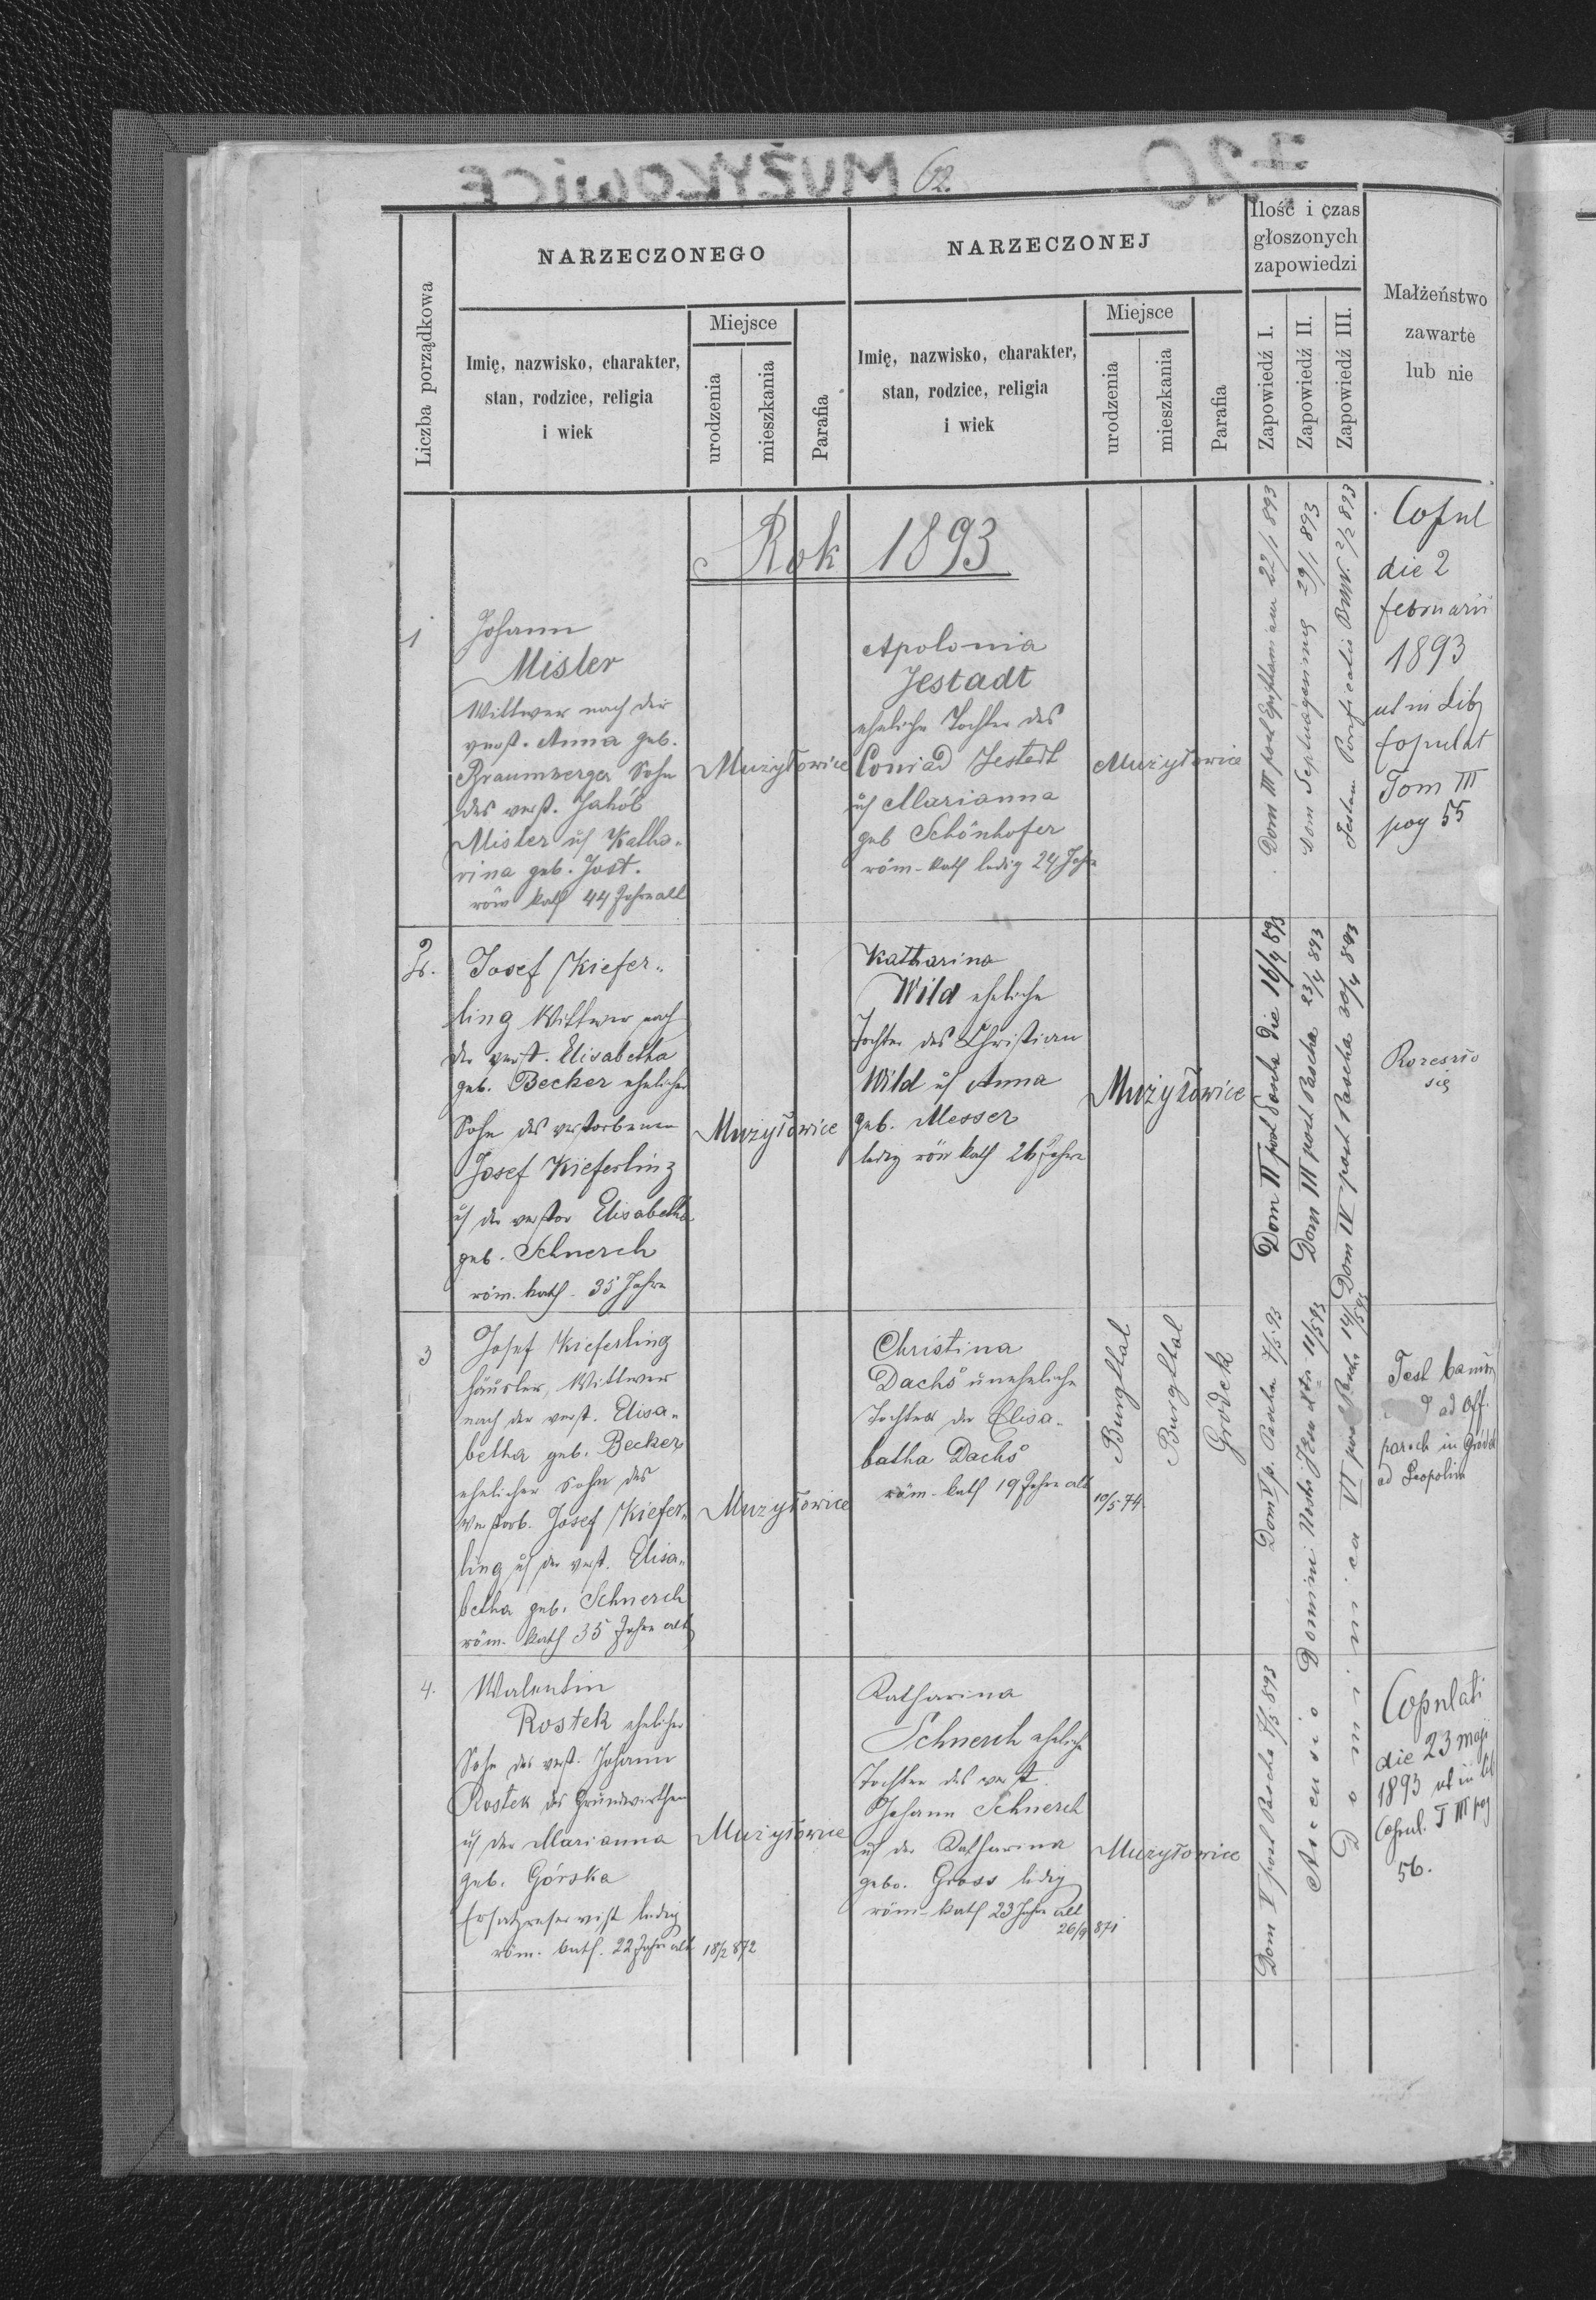 MUŻYKOWICE
62
720
Liczba porządkowa
NARZECZONEGO
Imię, nazwisko, charakter,
stan, rodzice, religia
i wiek
Miejsce
urodzenia
mieszkania
Parafia
NARZECZONEJ
Imię, nazwisko, charakter,
stan, rodzice, religia
i wiek
Miejsce
urodzenia
mieszkania
Parafia
Ilość i czas
głoszonych
zapowiedzi
Zapowiedź I.
Zapowiedź II.
Zapowiedź III.
Małżeństwo
zawarte
lub nie
Rok 1893
1
Johann
Mister
Wittwer nach der
verst. Anna geb.
Braumberger Sohn
des verst. Jakób
Mister u Katha-
rina geb. Jost.
röm kath 44 Jahre alt
Mużyłowice
Apolonia
Jestadt
eheliche Tochter des
Conrad Jestadt
u Marianna
geb Schönhofer
röm-kath ledig 24 Jahre
Mużyłowice
Dom III post Epiphaniam 22/1 893
Dom Septuagesima 29/1 893
Festum Purificatio BMV. 2/2 893
Copul
die 2
februarii
1893
ut in Lib
copulat
Tom III
pag 55
2.
Josef Kiefer-
ling Wittwer nach
der verst. Elisabetha
geb. Becker ehelicher
Sohn des verstorbenen
Josef Kieferling
u der verstor Elisabetha
geb. Schnerch
röm. kath. 35 Jahre
Mużyłowice
Katharina
Wild eheliche
Tochter des Christian
Wild u Anna
geb. Messer
ledig röm kath 26 Jahre
Mużyłowice
Dom II post Pascha die 16/4 893
Dom III post Pascha 23/4 893
Dom IV post Pascha 30/4 893
Rozeszło
się
3
Josef Kieferling
häusler, Wittwer
nach der verst. Elisa-
betha geb. Becker
ehelicher Sohn des
verstorb. Josef Kiefer-
ling u der verst. Elisa-
betha geb. Schnerch
röm. kath 35 Jahre alt
Mużyłowice
Christina
Dachs uneheliche
Tochter der Elisa-
batha Dachs
röm-kath 19 Jahre alt
10/5 74
Burgthal
Burgthal
Gródek
Dom V p. Pascha 7/5 93
Ascensio Domini Nostri 11/5 93
Dominica VI post Pascha 14/5 93
Test bann
ad Off.
paroch in Gródek
ad Leopolim
4.
Walentin
Rostek ehelicher
Sohn des verst. Johann
Rostek des Grundwirthen
u der Marianna
geb. Górska
Ersatzreservist ledig
röm. kath. 22 Jahre alt
18/2 872
Mużyłowice
Katharina
Schnerch eheliche
Tochter des verst.
Johann Schnerch
u der Katharina
gebo. Gross ledig
röm-kath 23 Jahre alt
26/9 871
Mużyłowice
Dom V post Pascha 7/5 893
Copulati
die 23 maji
1893 ut in lib
Copul. T III pag
56.